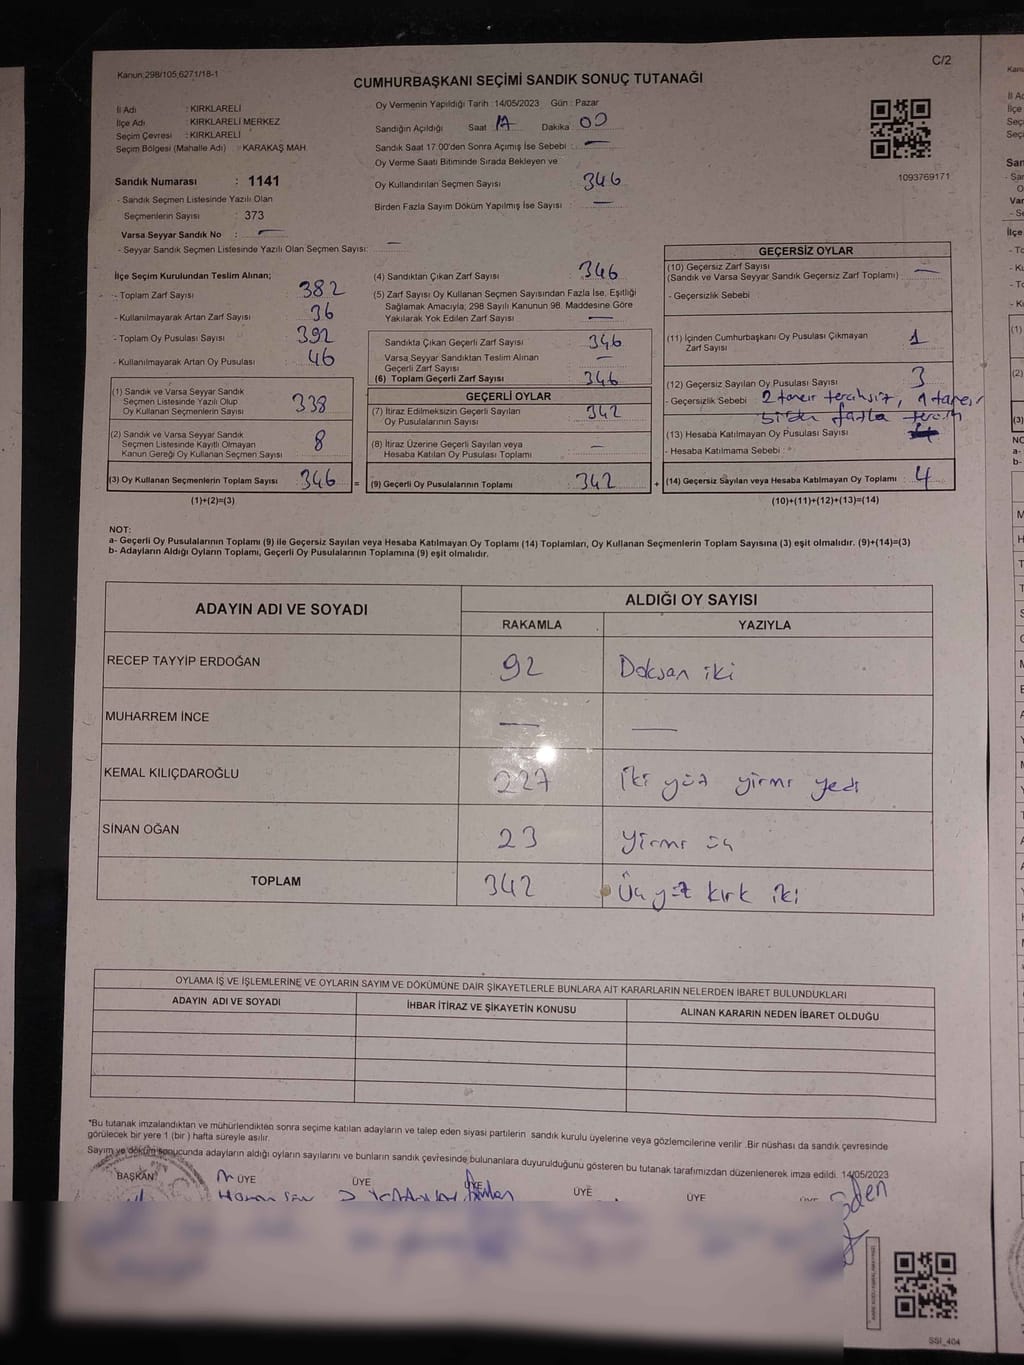 Kanun,298/105,6271/18-1
C/2
CUMHURBAŞKANI SEÇİMİ SANDIK SONUÇ TUTANAĞI
İl Adı : KIRKLARELİ
İlçe Adı : KIRKLARELİ MERKEZ
Seçim Çevresi : KIRKLARELİ
Seçim Bölgesi (Mahalle Adı) : KARAKAŞ MAH.
Sandık Numarası : 1141
- Sandık Seçmen Listesinde Yazılı Olan
Seçmenlerin Sayısı : 373
Varsa Seyyar Sandık No : —
- Seyyar Sandık Seçmen Listesinde Yazılı Olan Seçmen Sayısı: —
Oy Vermenin Yapıldığı Tarih : 14/05/2023 Gün : Pazar
Sandığın Açıldığı Saat 17 Dakika 00
Sandık Saat 17:00'den Sonra Açımış İse Sebebi : —
Oy Verme Saati Bitiminde Sırada Bekleyen ve
Oy Kullandırılan Seçmen Sayısı : 346
Birden Fazla Sayım Döküm Yapılmış İse Sayısı : —
1093769171
İlçe Seçim Kurulundan Teslim Alınan;
- Toplam Zarf Sayısı : 382
- Kullanılmayarak Artan Zarf Sayısı : 36
- Toplam Oy Pusulası Sayısı : 392
- Kullanılmayarak Artan Oy Pusulası : 46
(1) Sandık ve Varsa Seyyar Sandık
Seçmen Listesinde Yazılı Olup
Oy Kullanan Seçmenlerin Sayısı : 338
(2) Sandık ve Varsa Seyyar Sandık
Seçmen Listesinde Kayıtlı Olmayan
Kanun Gereği Oy Kullanan Seçmen Sayısı : 8
(3) Oy Kullanan Seçmenlerin Toplam Sayısı : 346
(1)+(2)=(3)
(4) Sandıktan Çıkan Zarf Sayısı : 346
(5) Zarf Sayısı Oy Kullanan Seçmen Sayısından Fazla İse, Eşitliği
Sağlamak Amacıyla; 298 Sayılı Kanunun 98. Maddesine Göre
Yakılarak Yok Edilen Zarf Sayısı : —
Sandıkta Çıkan Geçerli Zarf Sayısı : 346
Varsa Seyyar Sandıktan Teslim Alınan
Geçerli Zarf Sayısı : —
(6) Toplam Geçerli Zarf Sayısı : 346
GEÇERLİ OYLAR
(7) İtiraz Edilmeksizin Geçerli Sayılan
Oy Pusulalarının Sayısı : 342
(8) İtiraz Üzerine Geçerli Sayılan veya
Hesaba Katılan Oy Pusulası Toplamı : —
= (9) Geçerli Oy Pusulalarının Toplamı : 342 +
GEÇERSİZ OYLAR
(10) Geçersiz Zarf Sayısı
(Sandık ve Varsa Seyyar Sandık Geçersiz Zarf Toplamı) : —
- Geçersizlik Sebebi
(11) İçinden Cumhurbaşkanı Oy Pusulası Çıkmayan
Zarf Sayısı : 1
(12) Geçersiz Sayılan Oy Pusulası Sayısı : 3
- Geçersizlik Sebebi 2 tanesi tercihsiz, 1 tanesi
birden fazla tercih
(13) Hesaba Katılmayan Oy Pusulası Sayısı
- Hesaba Katılmama Sebebi :
(14) Geçersiz Sayılan veya Hesaba Katılmayan Oy Toplamı : 4
(10)+(11)+(12)+(13)=(14)
NOT:
a- Geçerli Oy Pusulalarının Toplamı (9) ile Geçersiz Sayılan veya Hesaba Katılmayan Oy Toplamı (14) Toplamları, Oy Kullanan Seçmenlerin Toplam Sayısına (3) eşit olmalıdır. (9)+(14)=(3)
b- Adayların Aldığı Oyların Toplamı, Geçerli Oy Pusulalarının Toplamına (9) eşit olmalıdır.
ADAYIN ADI VE SOYADI ALDIĞI OY SAYISI
RAKAMLA YAZIYLA
RECEP TAYYİP ERDOĞAN 92 Doksan iki
MUHARREM İNCE — —
KEMAL KILIÇDAROĞLU 227 İki yüz yirmi yedi
SİNAN OĞAN 23 Yirmi üç
TOPLAM 342 Üç yüz kırk iki
OYLAMA İŞ VE İŞLEMLERİNE VE OYLARIN SAYIM VE DÖKÜMÜNE DAİR ŞİKAYETLERLE BUNLARA AİT KARARLARIN NELERDEN İBARET BULUNDUKLARI
ADAYIN ADI VE SOYADI İHBAR İTİRAZ VE ŞİKAYETİN KONUSU ALINAN KARARIN NEDEN İBARET OLDUĞU
*Bu tutanak imzalandıktan ve mühürlendikten sonra seçime katılan adayların ve talep eden siyasi partilerin sandık kurulu üyelerine veya gözlemcilerine verilir. Bir nüshası da sandık çevresinde
görülecek bir yere 1 (bir) hafta süreyle asılır.
Sayım ve döküm sonucunda adayların aldığı oyların sayılarını ve bunların sandık çevresinde bulunanlara duyurulduğunu gösteren bu tutanak tarafımızdan düzenlenerek imza edildi. 14/05/2023
BAŞKAN ÜYE ÜYE ÜYE ÜYE ÜYE
SSI_404